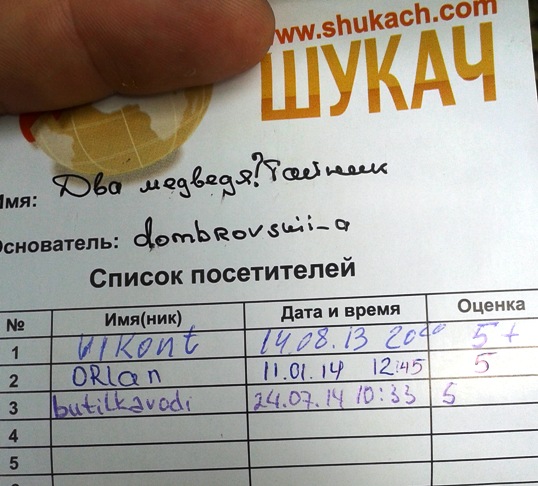 www.shukach.com
ШУКАЧ
Имя: Два медведя? Тайник
Основатель: dombrovskii-a
Список посетителей
№ Имя(ник) Дата и время Оценка
1 VIKont 14.08.13 20⁰⁰ 5+
2 ORlan 11.01.14 12:45 5
3 butilkavodi 24.07.14 10:33 5
4
5